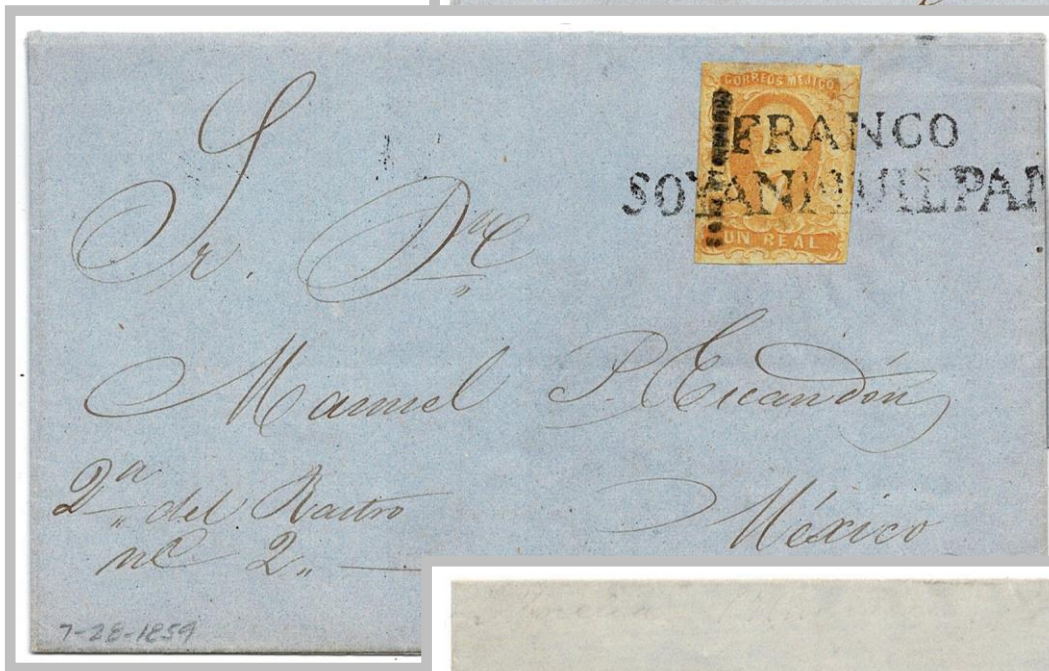 CORREOS MEJICO
FRANCO
SOYANIQUILPAN
UN REAL
Sr. Dn
Manuel P. Escandón
2a del Rastro
no 2.
México
7-28-1859